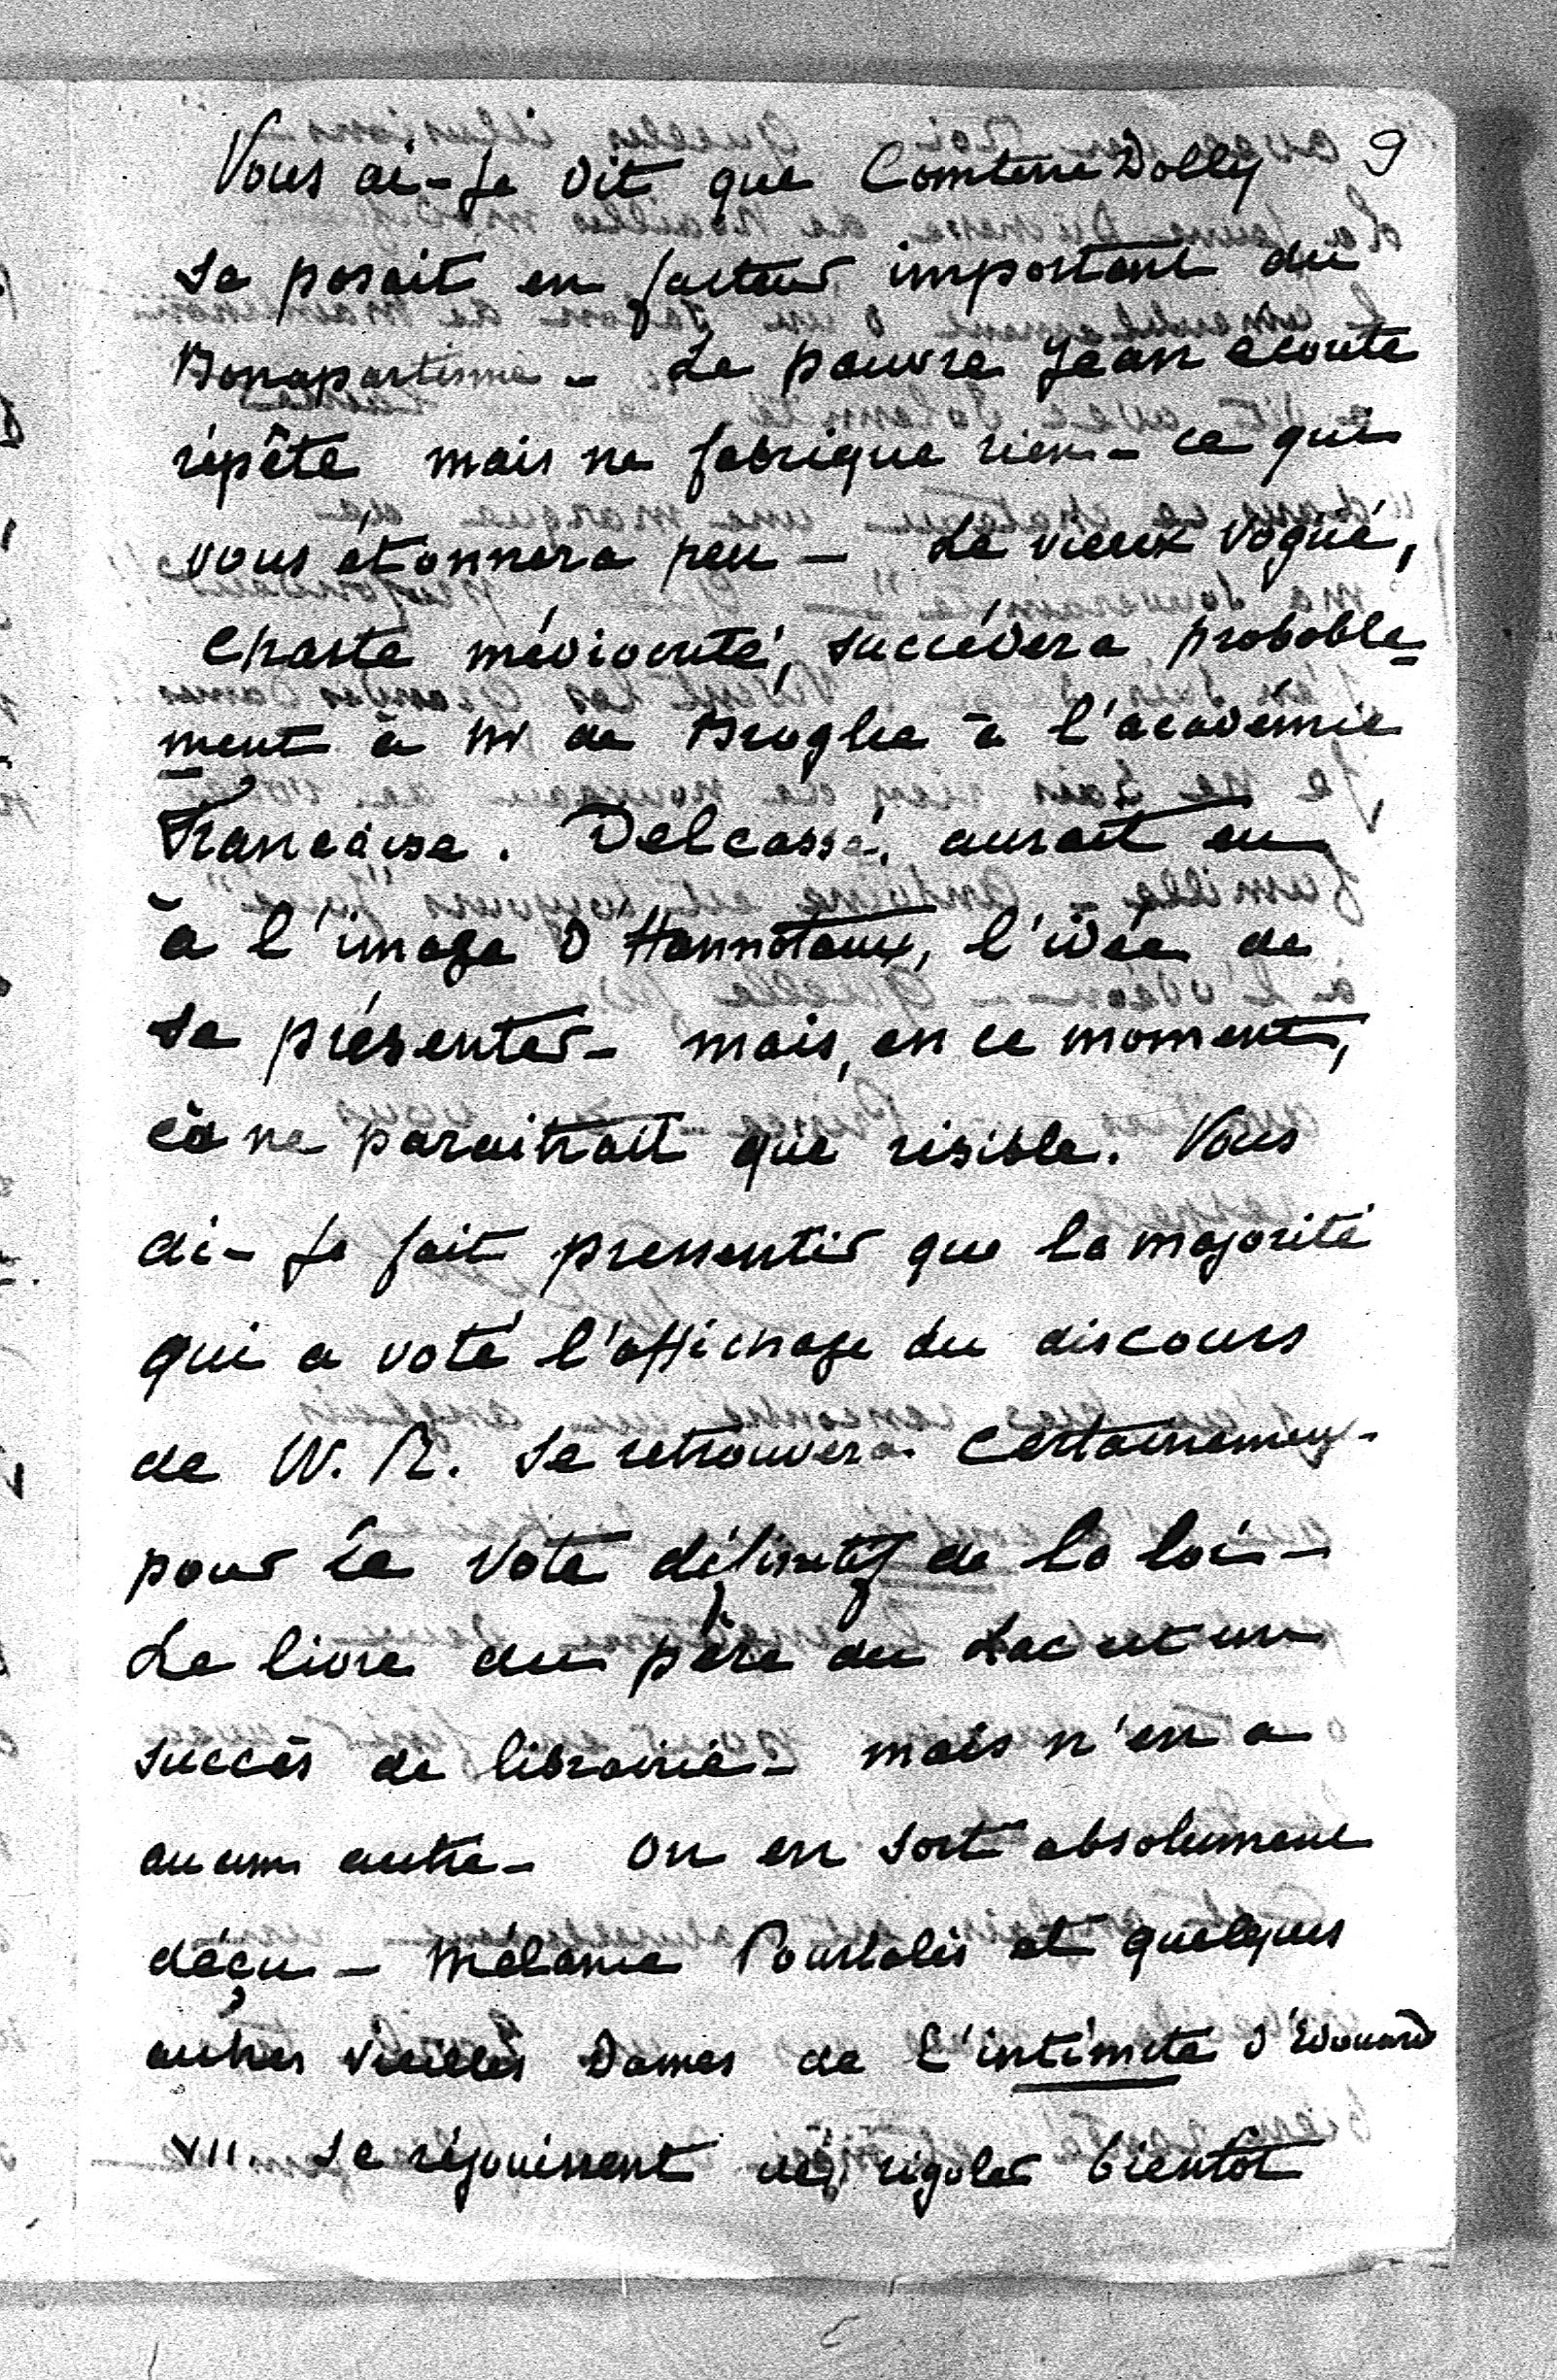 9
Vous ai-je dit que Comtesse Dolly
se posait en facteur important du
Bonapartisme - Le pauvre Jean écoute
répête mais ne fabrique rien - ce qui
vous étonnera peu - Le vieux Vogüé,
chaste médiocrité, succédera probable-
ment à Mr de Broglie à l'académie
Française. Delcassé, aurait eu
à l'image d'Hannotaux, l'idée de
se présenter - mais, en ce moment,
cà ne paraitrait que risible. Vous
ai-je fait pressentir que la majorité
qui a voté l'affichage du discours
de W. R. se retrouvera certainement
pour le vote définitif de la loi -
Le livre du père du Lac est un
succès de librairie - mais n'en a
aucun autre - on en sort absolument
déçu - Mélanie Pourtalès et quelques
autres vieilles Dames de l'intimité d'Edouard
VII. se réjouissent de rigoler bientôt